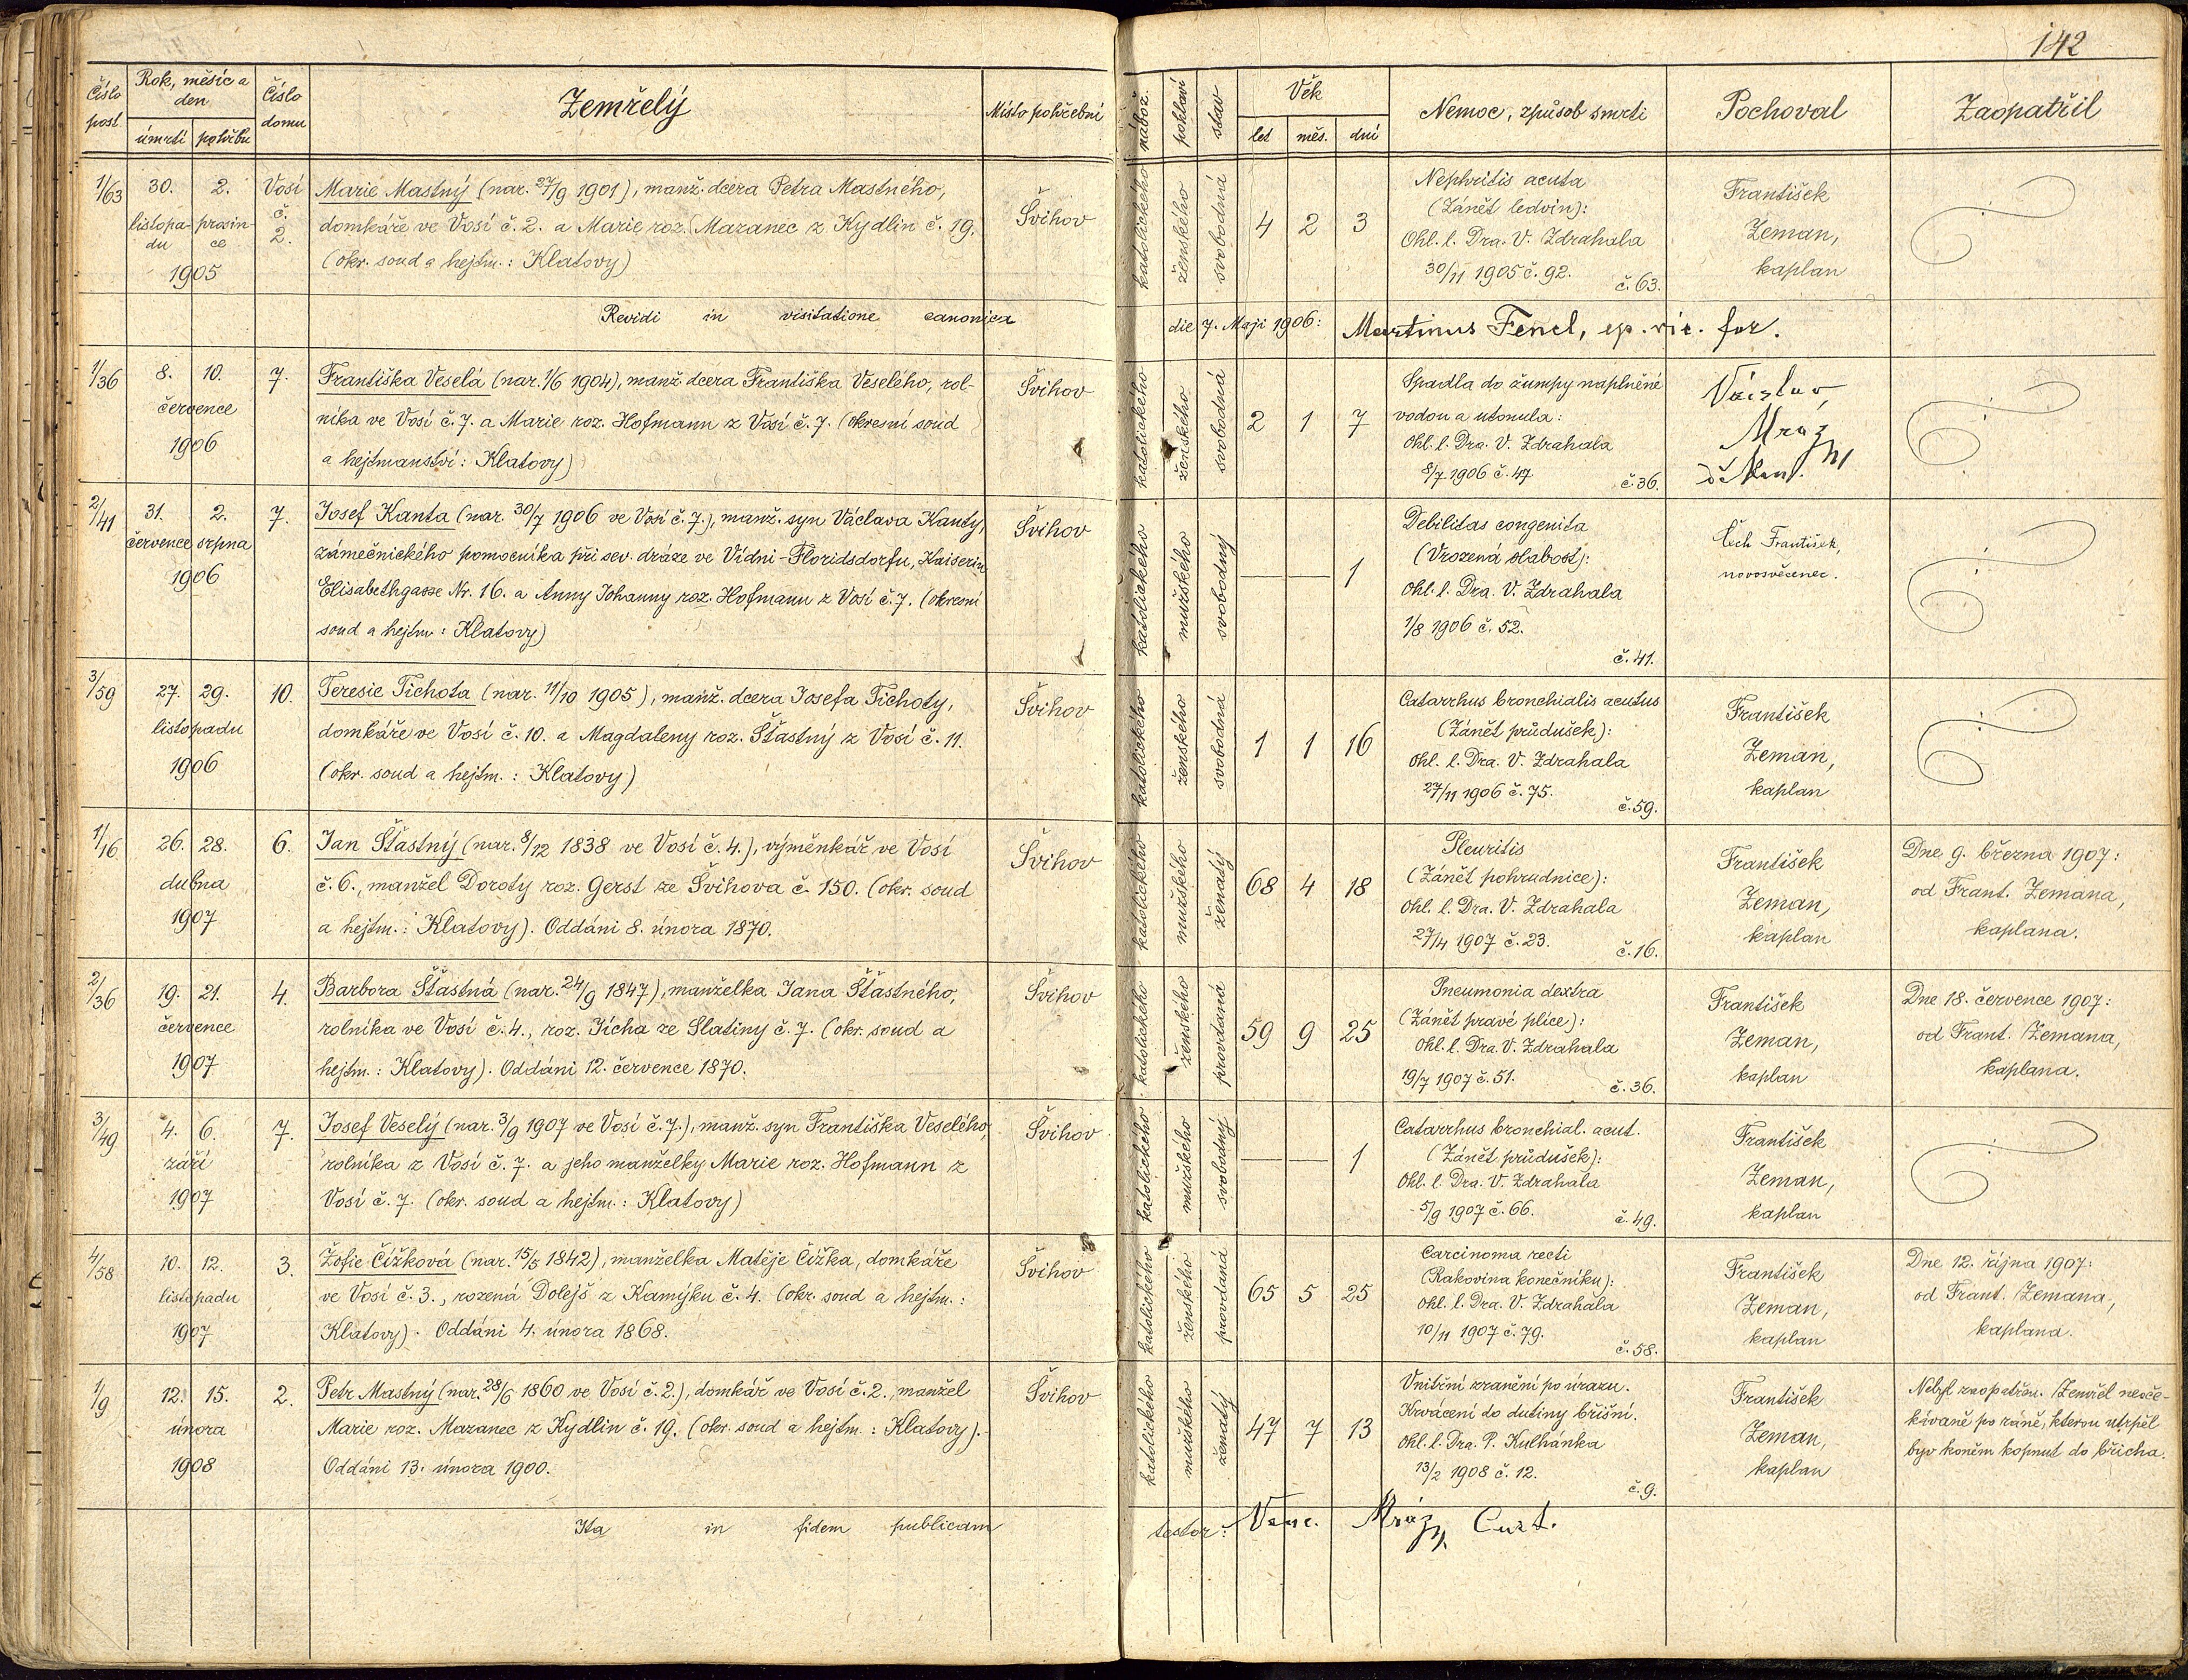 142
Číslo post.
Rok, měsíc a den
úmrtí
pohřbu
Číslo domu
Zemřelý
Místo pohřební
nábož.
pohlaví
stav
Věk
let
měs.
dní
Nemoc, způsob smrti
Pochoval
Zaopatřil
1/63
30. listopadu
2. prosince
1905
Vosí č. 2.
Marie Mastný (nar. 27/9 1901), manž. dcera Petra Mastného,
domkáře ve Vosí č. 2. a Marie roz. Mazanec z Kydlin č. 19.
(okr. soud a hejtm.: Klatovy)
Švihov
katolického
ženského
svobodná
4 2 3
Nephritis acuta
(Zánět ledvin):
Ohl. l. Dra. V. Zdrahala
30/11 1905 č. 92.
č. 63.
František
Zeman,
kaplan
Revidi in visitatione canonica die 7. Maji 1906: Martinus Fencl, ep. vic. for.
1/36
8. 10.
července
1906
7.
Františka Veselá (nar. 1/6 1904), manž. dcera Františka Veselého, rol-
níka ve Vosí č. 7. a Marie roz. Hofmann z Vosí č. 7. (okresní soud
a hejtmanství: Klatovy)
Švihov
katolického
ženského
svobodná
2 1 7
Spadla do žumpy naplněné
vodou a utonula:
Ohl. l. Dra. V. Zdrahala
8/7 1906 č. 47
č. 36.
Václav
Mráz
děkan.
2/41
31. 2.
července srpna
1906
7.
Josef Kanta (nar. 30/7 1906 ve Vosí č. 7.), manž. syn Václava Kanty,
zámečnického pomocníka při sev. dráze ve Vídni-Floridsdorfu, Kaiserin
Elisabethgasse Nr. 16. a Anny Johanny roz. Hofmann z Vosí č. 7. (okresní
soud a hejtm.: Klatovy)
Švihov
katolického
mužského
svobodný
— — 1
Debilitas congenita
(Vrozená slabost):
Ohl. l. Dra. V. Zdrahala
1/8 1906 č. 52.
č. 41.
Čech František,
novosvěcenec.
3/59
27. 29.
listopadu
1906
10.
Teresie Tichota (nar. 11/10 1905), manž. dcera Josefa Tichoty,
domkáře ve Vosí č. 10. a Magdaleny roz. Šťastný z Vosí č. 11.
(okr. soud a hejtm.: Klatovy)
Švihov
katolického
ženského
svobodná
1 1 16
Catarrhus bronchialis acutus
(Zánět průdušek):
Ohl. l. Dra. V. Zdrahala
27/11 1906 č. 75.
č. 59.
František
Zeman,
kaplan
1/16
26. 28.
dubna
1907
6.
Jan Šťastný (nar. 8/12 1838 ve Vosí č. 4.), výměnkář ve Vosí
č. 6., manžel Doroty roz. Gerst ze Švihova č. 150. (okr. soud
a hejtm.: Klatovy). Oddáni 8. února 1870.
Švihov
katolického
mužského
ženatý
68 4 18
Pleuritis
(Zánět pohrudnice):
Ohl. l. Dra. V. Zdrahala
27/4 1907 č. 23.
č. 16.
František
Zeman,
kaplan
Dne 9. března 1907:
od Frant. Zemana,
kaplana.
2/36
19. 21.
července
1907
4.
Barbora Šťastná (nar. 24/9 1847), manželka Jana Šťastného,
rolníka ve Vosí č. 4., roz. Jícha ze Slatiny č. 7. (okr. soud a
hejtm.: Klatovy). Oddáni 12. července 1870.
Švihov
katolického
ženského
provdaná
59 9 25
Pneumonia dextra
(Zánět pravé plíce):
Ohl. l. Dra. V. Zdrahala
19/7 1907 č. 51.
č. 36.
František
Zeman,
kaplan
Dne 18. července 1907:
od Frant. Zemana,
kaplana.
3/49
4. 6.
září
1907
7.
Josef Veselý (nar. 3/9 1907 ve Vosí č. 7.), manž. syn Františka Veselého,
rolníka z Vosí č. 7. a jeho manželky Marie roz. Hofmann z
Vosí č. 7. (okr. soud a hejtm.: Klatovy)
Švihov
katolického
mužského
svobodný
— — 1
Catarrhus bronchial. acut.
(Zánět průdušek):
Ohl. l. Dra. V. Zdrahala
5/9 1907 č. 66.
č. 49.
František
Zeman,
kaplan
4/58
10. 12.
listopadu
1907
3.
Žofie Čížková (nar. 15/5 1842), manželka Matěje Čížka, domkáře
ve Vosí č. 3., rozená Dolejš z Kamýku č. 4. (okr. soud a hejtm.:
Klatovy). Oddáni 4. února 1868.
Švihov
katolického
ženského
provdaná
65 5 25
Carcinoma recti
(Rakovina konečníku):
Ohl. l. Dra. V. Zdrahala
10/11 1907 č. 79.
č. 58.
František
Zeman,
kaplan
Dne 12. října 1907:
od Frant. Zemana,
kaplana.
1/9
12. 15.
února
1908
2.
Petr Mastný (nar. 28/6 1860 ve Vosí č. 2.), domkář ve Vosí č. 2., manžel
Marie roz. Mazanec z Kydlin č. 19. (okr. soud a hejtm.: Klatovy).
Oddáni 13. února 1900.
Švihov
katolického
mužského
ženatý
47 7 13
Vnitřní zranění po úrazu.
Krvácení do dutiny břišní.
Ohl. l. Dra. P. Kulhánka
13/2 1908 č. 12.
č. 9.
František
Zeman,
kaplan
Nebyl zaopatřen. Zemřel neoče-
kívaně po ráně, kterou utrpěl
byv koněm kopnut do břicha.
Ita in fidem publicam testor: Venc. Mráz, Curt.